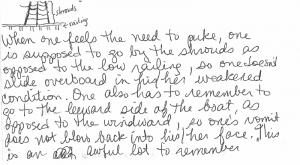 shrouds
railing
When one feels the need to puke, one
is supposed to go by the shrouds as
opposed to the low railing, so one doesn't
slide overboard in his/her weakened
condition. One also has to remember to
go to the leyward side of the boat, as
opposed to the windward, so one's vomit
does not blow back into his/her face. This
is an awful lot to remember